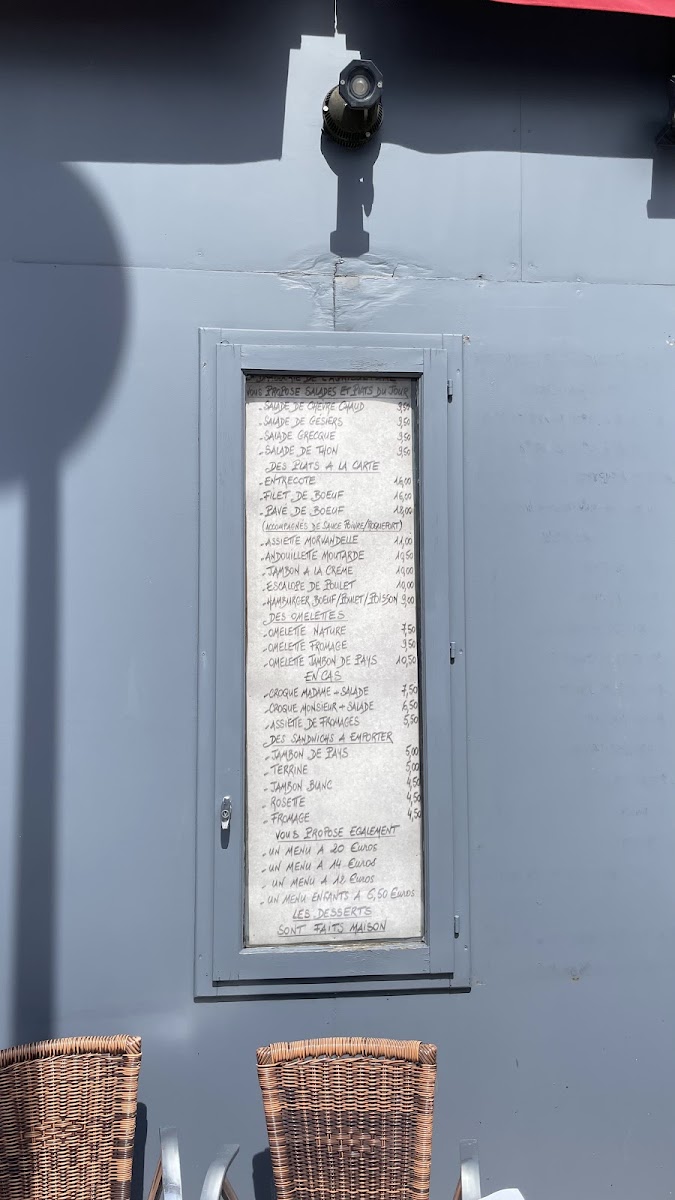 VOUS PROPOSE SALADES ET PLATS DU JOUR
- SALADE DE CHEVRE CHAUD 9,50
- SALADE DE GESIERS 9,50
- SALADE GRECQUE 9,50
- SALADE DE THON 9,50
DES PLATS A LA CARTE
- ENTRECOTE 16,00
- FILET DE BOEUF 16,00
- PAVE DE BOEUF 18,00
(ACCOMPAGNÉS DE SAUCE POIVRE/ROQUEFORT)
- ASSIETTE MORVANDELLE 11,00
- ANDOUILLETTE MOUTARDE 10,50
- JAMBON A LA CRÈME 10,00
- ESCALOPE DE POULET 10,00
- HAMBURGER BOEUF/POULET/POISSON 9,00
DES OMELETTES
- OMELETTE NATURE 7,50
- OMELETTE FROMAGE 9,50
- OMELETTE JAMBON DE PAYS 10,50
EN CAS
- CROQUE MADAME + SALADE 7,50
- CROQUE MONSIEUR + SALADE 6,50
- ASSIETTE DE FROMAGES 5,50
DES SANDWICHS A EMPORTER
- JAMBON DE PAYS 5,00
- TERRINE 5,00
- JAMBON BLANC 4,50
- ROSETTE 4,50
- FROMAGE 4,50
VOUS PROPOSE EGALEMENT
- UN MENU A 20 Euros
- UN MENU A 14 Euros
- UN MENU A 12 Euros
- UN MENU ENFANTS A 6,50 Euros
LES DESSERTS
SONT FAITS MAISON